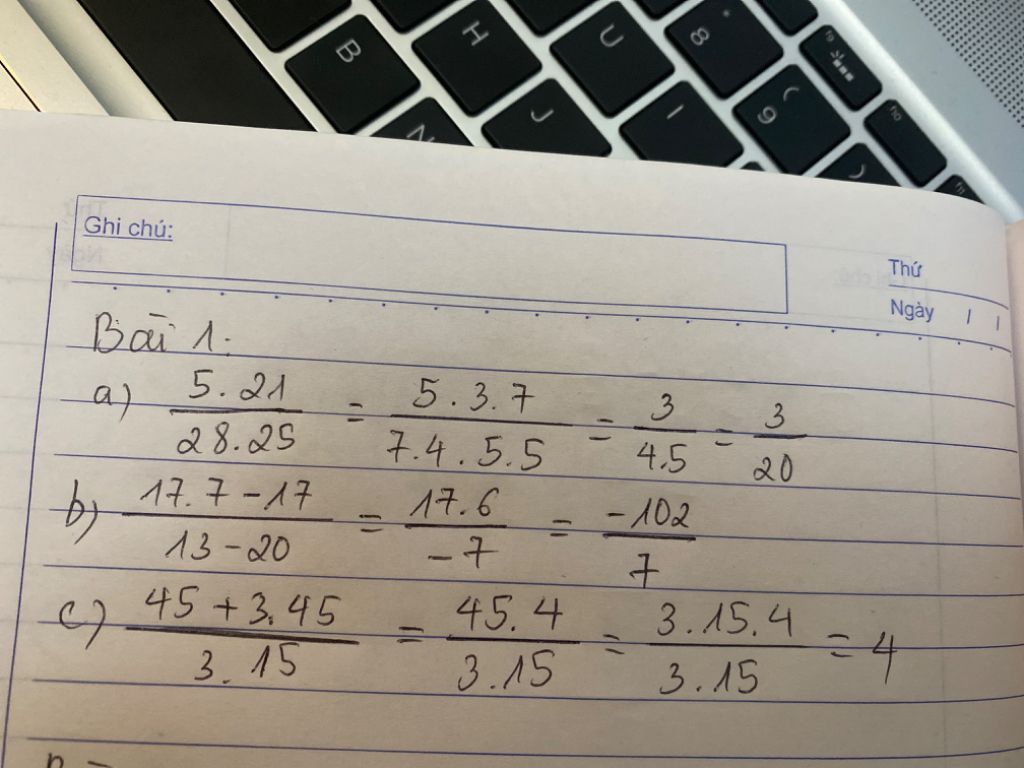 B H U 8 *
N J I 9 (
f9 f10 f11 )
Ghi chú:
Thứ
Ngày / /
Bài 1:
a) 5.21/28.25 = 5.3.7/7.4.5.5 = 3/4.5 = 3/20
b) 17.7-17/13-20 = 17.6/-7 = -102/7
c) 45+3.45/3.15 = 45.4/3.15 = 3.15.4/3.15 = 4